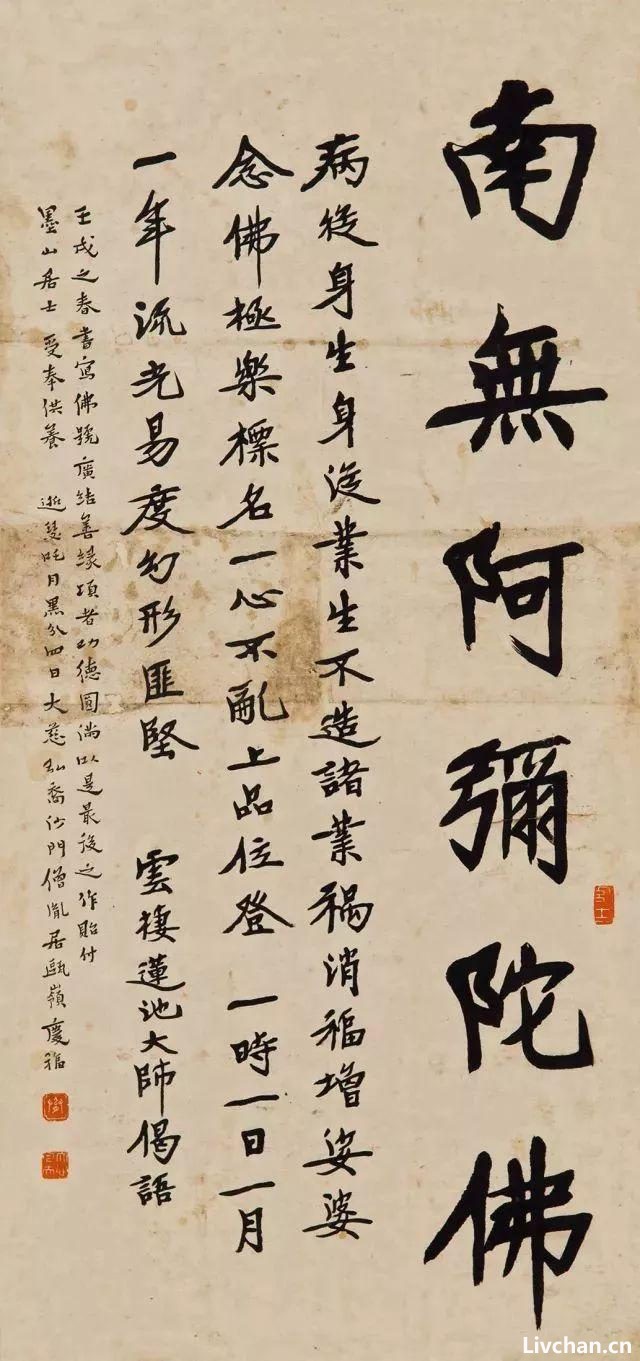 南無阿彌陀佛
病從身生身從業生不造諸業禍消福增娑婆
念佛極樂標名一心不亂上品位登 一時一日一月
一年流光易度幻形匪堅 雲棲蓮池大師偈語
壬戌之春書寫佛號廣結善緣頃者功德圓滿以是最後之作貽付
墨山居士 受奉供養 逝瑟吒月黑分四日大慈弘裔沙門僧胤居甌嶺慶福
Livchan.cn